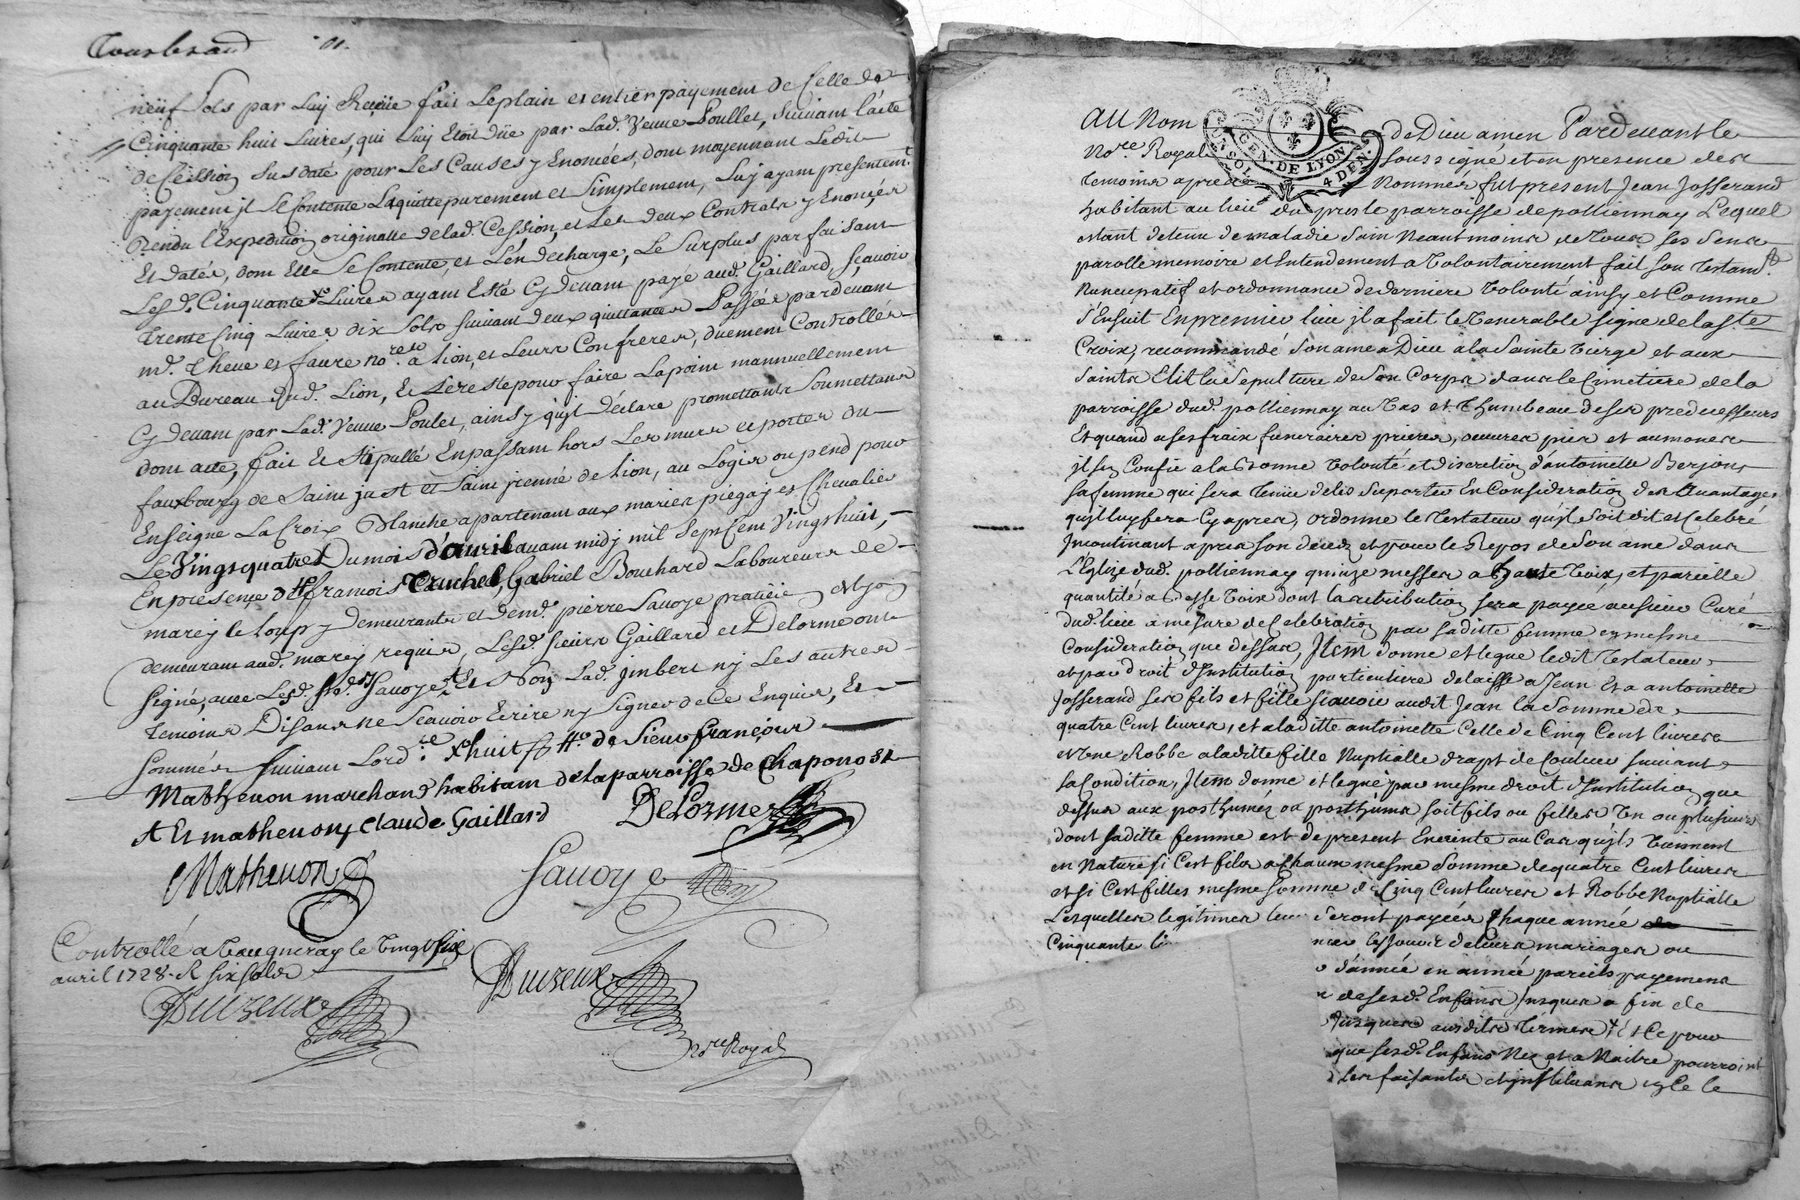 neüf sols par Luy Reçüe fait Leplain et entier payement de Celle de
Cinquante huit Livres, qui Luy Etoit düe par Lad.e Veuve Poullet, Suivant l'acte
de Cession Susdaté pour Les Causes y Enoncées, dont moyennant Ledit
payement jl Se Contente Laquitte purement et Simplement, Luy ayant presentem.t
Rendu l'Expedition originalle delad.e Cession, et Les deux Contrats y Enoncés
Et datés, dont Elle Se Contente, et L'en decharge, Le Surplus parfaisant
Lesd. Cinquante Livres ayant Esté Cy devant payé aud. Gaillard, sçavoir
trente Cinq Livres dix Sols suivant deux quittances Passées pardevant
m.e Theve et faure no.res a lion, et Leurs Confreres, duement Controllés
au Bureau dud. Lion, Et Le reste pour faire Lapoint mannuellement
Cy devant par Lad.e Veuve Poulet, ainsy qu'jl declare promettants Soumettans
dont acte, fait Et Stipullé En passant hors Les murs et portes du
fauxbourg de Saint just et Saint jrenné de lion, au Logis ou pend pour
Enseigne La Croix Blanche apartenant aux mariés piegay et Chevalier
Le Vingt quatre Dumois d'avril avant midy mil Sept Cent Vingt huit,
En presence de francois Truchet, Gabriel Bouchard Laboureurs de
marcy le Loup y demeurants et dem.e pierre Savoye praticien
demeurant aud. marcy requis, Lesd. sieurs Gaillard et Delorme ont
Signé, avec Lesd. Savoye Et Non Lad. jmbert ny Les autres
temoins Disans ne Scavoir Ecrire ny Signer de Ce Enquis, Et
Sommés suivant Lord.ce huit de Sieur françois
Mathevon marchand habitant de la parroisse de Chaponost
Et mathevon Claude Gaillard DeLorme
Mathevon Savoye
Controllé a Vaugneray le Vingt Six
avril 1728. R six sols
No.re Royal
au Nom de Dieu amen Pardevant le
GEN. DE LYON
4 DEN.
No.re Royal soussigné et en presence des
temoins apres Nommés fut present Jean Josserand
habitant au lieu du parroisse de pollionnay Lequel
estant detenu de maladie Sain Neantmoins de tous ses sens
parolle memoire et Entendement a Volontairement fait son testam.t
Nuncupatif et ordonnance de derniere Volonté ainsy et Comme
s'Ensuit En premier lieu jl a fait le Venerable signe de la s.te
Croix, recommandé son ame a Dieu a la Sainte Vierge et aux
Saints Elit la Sepulture de Son Corps dans le Cimetiere de la
parroisse dud. pollionnay au Vas et Thumbeau de ses predecesseurs
Et quand a ses fraix funeraires prieres, oeuvres pies et aumones
jl s'en Confie a la bonne Volonté et discretion d'antoinette Berjon
sa femme qui sera tenüe de les Suporter En Consideration des avantages
qu'jl luy fera Cy apres, ordonne le Testateur qu'jl soit dit et Celebré
jncontinant apres son deces et pour le Repos de Son ame dans
L'Eglize dud. pollionnay quinze messes a haute Voix, et pareille
quantité a basse Voix dont la retribution sera payée au sieur Curé
dud. lieu a mesure de Celebration par saditte femme en mesme
Consideration que dessus, Jtem donne et legue ledit testateur
et par droit d'Institution particuliere delaisse a Jean Et a antoinette
Josserand ses fils et fille sçavoir audit Jean la Somme de
quatre Cent livres, et a laditte antoinette Celle de Cinq Cent livres
et Une Robbe a laditte fille Nuptialle drapt de Couleur suivant
sa Condition, Jtem donne et legue par mesme droit d'Institution que
dessus aux posthumes ou posthume soit fils ou filles Un ou plusieurs
dont saditte femme est de present Enceinte au Cas qu'jls Viennent
en Nature si C'est fils a Chacun mesme Somme de quatre Cent livres
et si C'est filles mesme Somme de Cinq Cent livres et Robbe Nuptialle
Lesquelles legitimes leur Seront payées Chaque année
Cinquante
de leurs mariages ou
d'année en année pareils payemens
de sesd. Enfans Jusques a fin de
Jusques ausdits termes Et Ce pour
que sesd. Enfans Nés et a Naitre pourroint
Les faisants et jnstituans